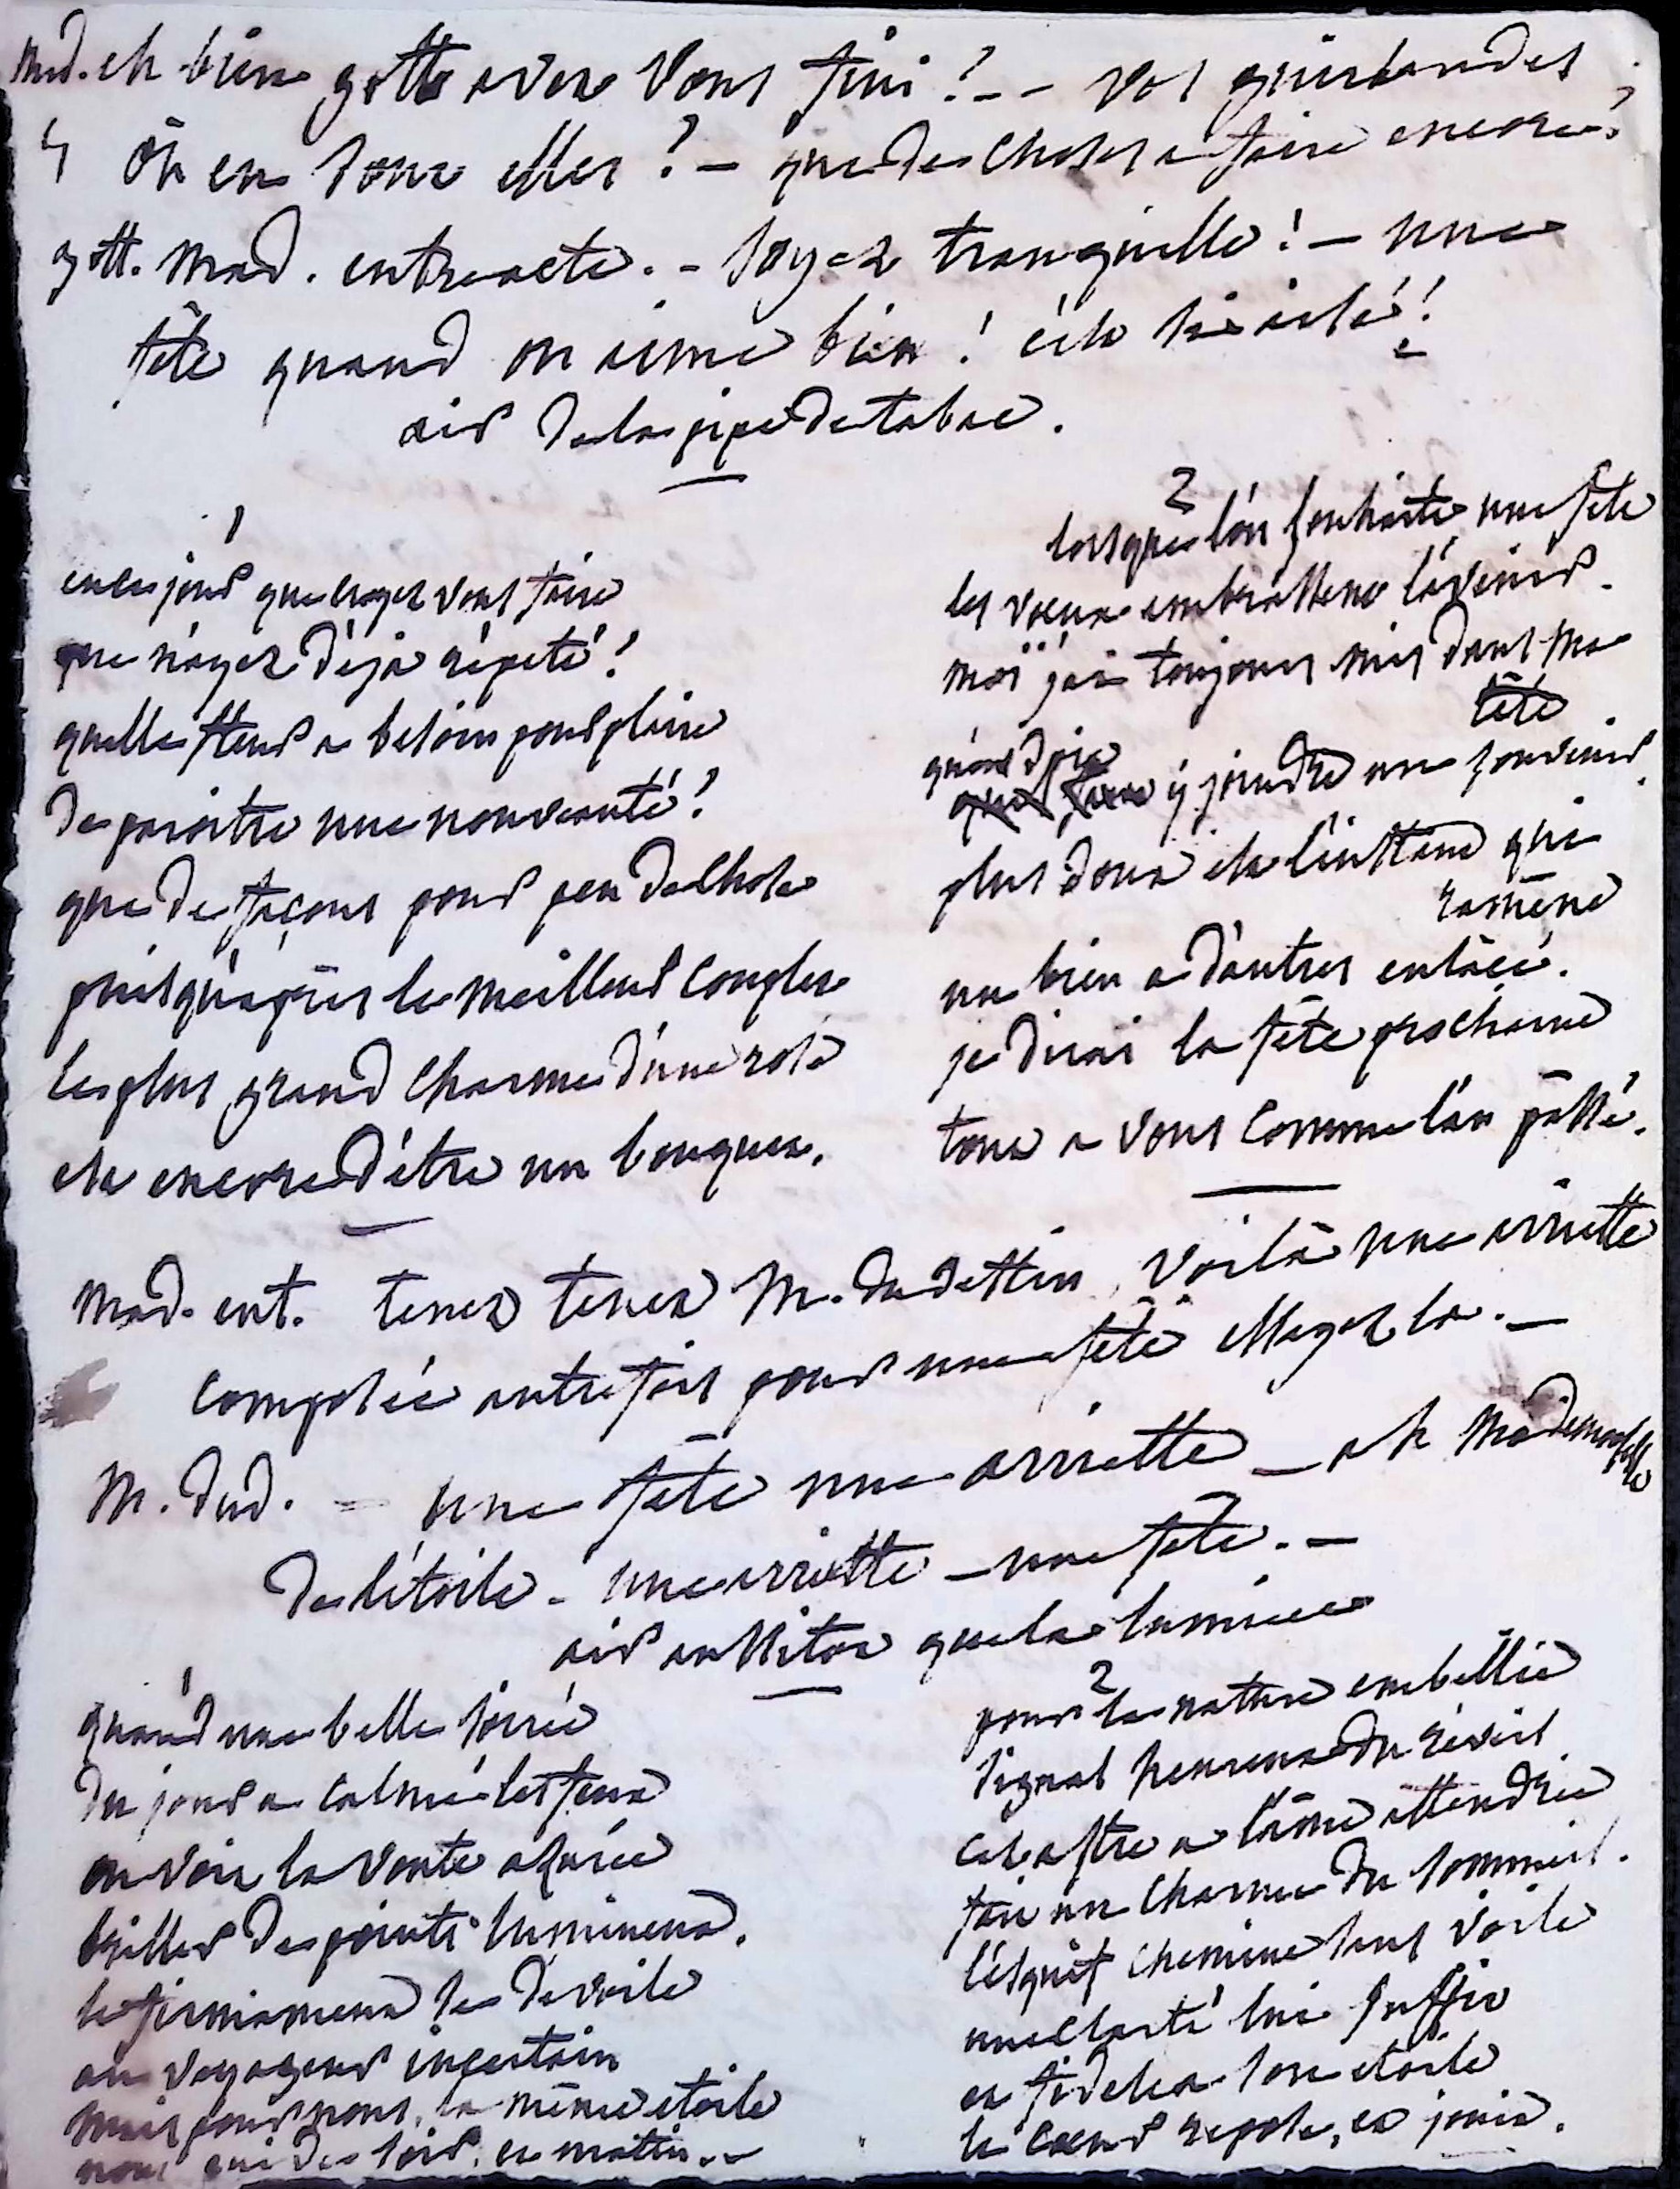 md. eh bien gott avez vous fini ! - - vos guirlandes ;
où en sont elles ? - que de choses a faire encore !
gott. mad. entreacte. - soyez tranquille ! - une
fête quand on aime bien ! est si aisé !
air de la pipe de tabac.
1
en ce jour que croyez vous faire
que n'ayez déja répeté !
quelle fleur a besoin pour plaire
de paroitre une nouveauté !
que de façons pour peu de chose
puisqu'après le meilleur couplet
le plus grand charme d'une rose
est encore d'être un bouquet.
2
lorsque l'on souhaite une fête
les voeux embrassent l'avenir.
moi j'ai toujours mis dans ma
tête
d'y joindre un souvenir.
plus doux est l'instant qui
ramène
un bien a d'autres enlacé.
je dirai la fête prochaine
tout a vous comme l'an passé.
mad. ent. tenez tenez M. dudettin voilà une ariette
composée autrefois pour une fête essayez la. -
M. dud. - une fête une ariette - ah mademoiselle
de l'étoile - une ariette - une fête. -
air aussitot que la lumiere
1
quand une belle soirée
du jour a calmé les feux
on voit la voute azurée
briller de points lumineux.
le firmament se dévoile
au voyageur incertain
mais pour nous, la même etoile
nous guide soir, et matin. -
2
pour la nature embellie
signal heureux du réveil
cet astre a l'âme attendrie
fait un charme du sommeil.
l'esquif chemine sans voile
une clarté lui suffit
et fidele a son etoile
le coeur repose, et jouit.